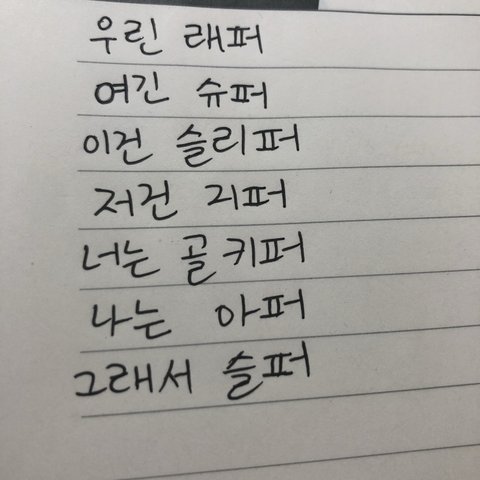 우린 래퍼
여긴 슈퍼
이건 슬리퍼
저건 지퍼
너는 골키퍼
나는 아퍼
그래서 슬퍼